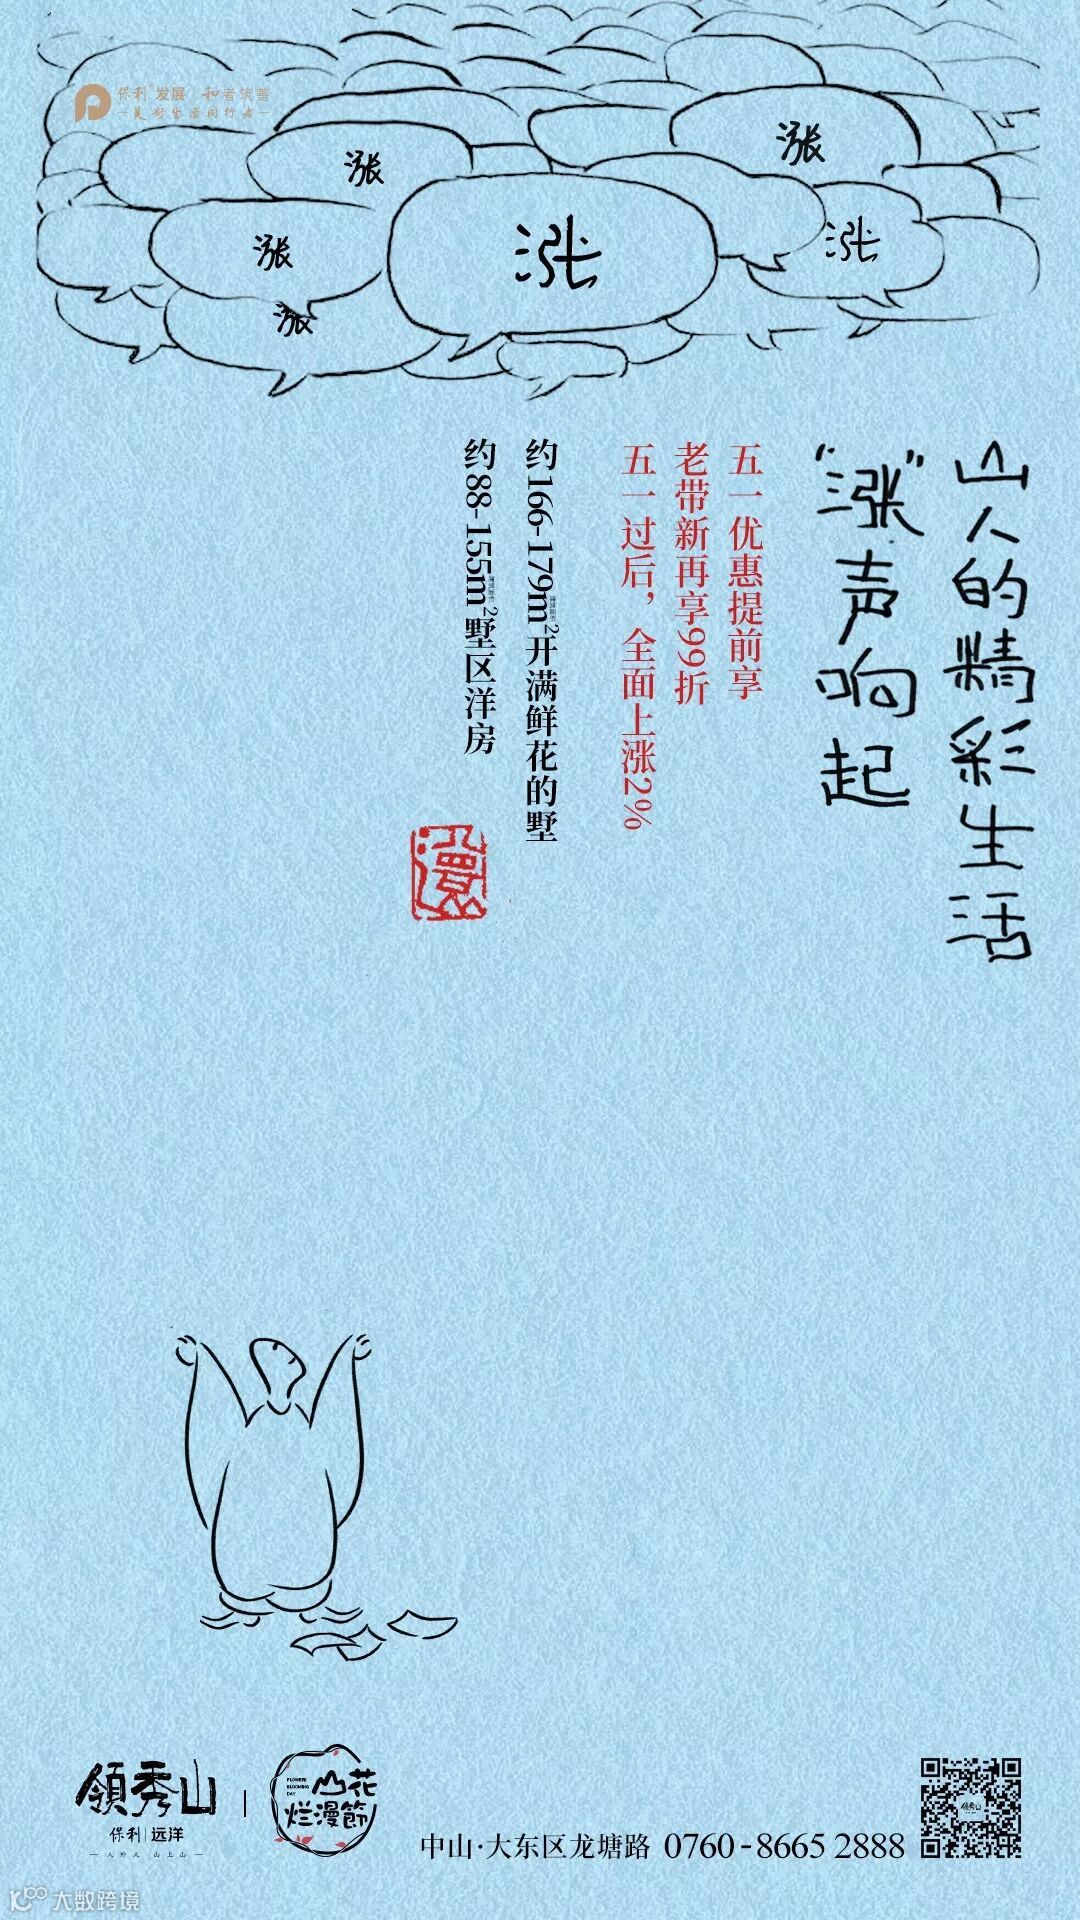 保利发展 和者筑善
美好生活同行者
涨
涨
涨
涨
涨
涨
山人的精彩生活
“涨”声响起
五一优惠提前享
老带新再享99折
五一过后，全面上涨2%
约166-179m²开满鲜花的墅
约88-155m²墅区洋房
領秀山
保利 远洋
人外人 山上山
FLOWERS
BLOOMING
DAY
山花
烂漫節
中山·大东区龙塘路 0760-8665 2888
領秀山
大数跨境